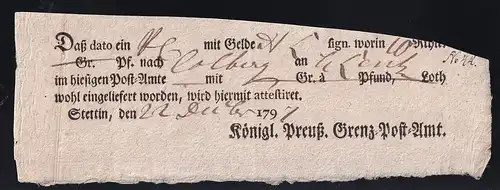 Daß dato ein PC mit Gelde A L sign. worin 10 Rthlr.
Gr. Pf. nach Colberg an
im hiesigen Post-Amte mit Gr. à Pfund, Loth
wohl eingeliefert worden, wird hiermit attestiret.
Stettin, den 22 Decbr 1797
Königl. Preuß. Grenz-Post-Amt.